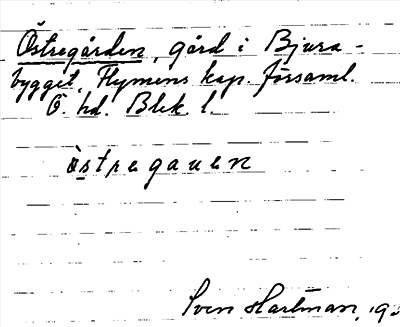 Östregården, gård i Bjura-
bygget, Flymens kap. församl.
Ö. hd. Blek. l.
östregauen
Sven Hartman, 19